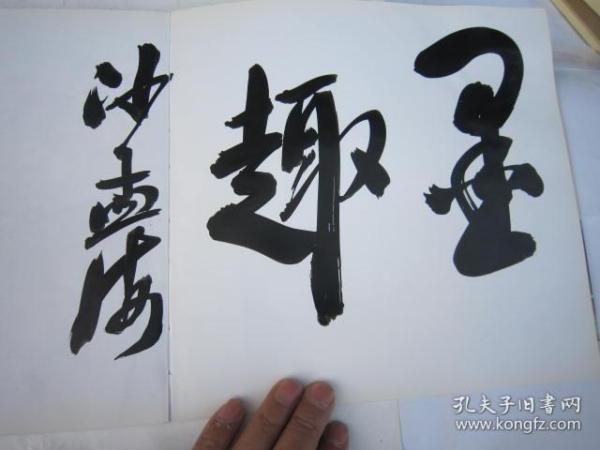 墨趣
沙孟海
孔夫子旧书网
www.kongfz.com